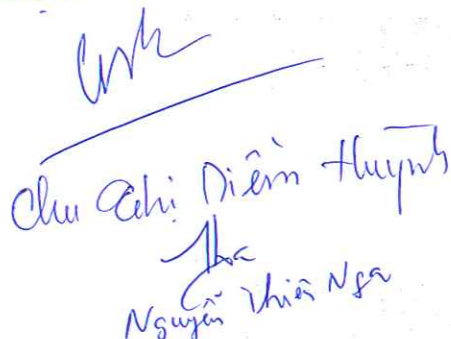 Chu Thị Diễm Huỳnh
Nguyễn Thiên Nga